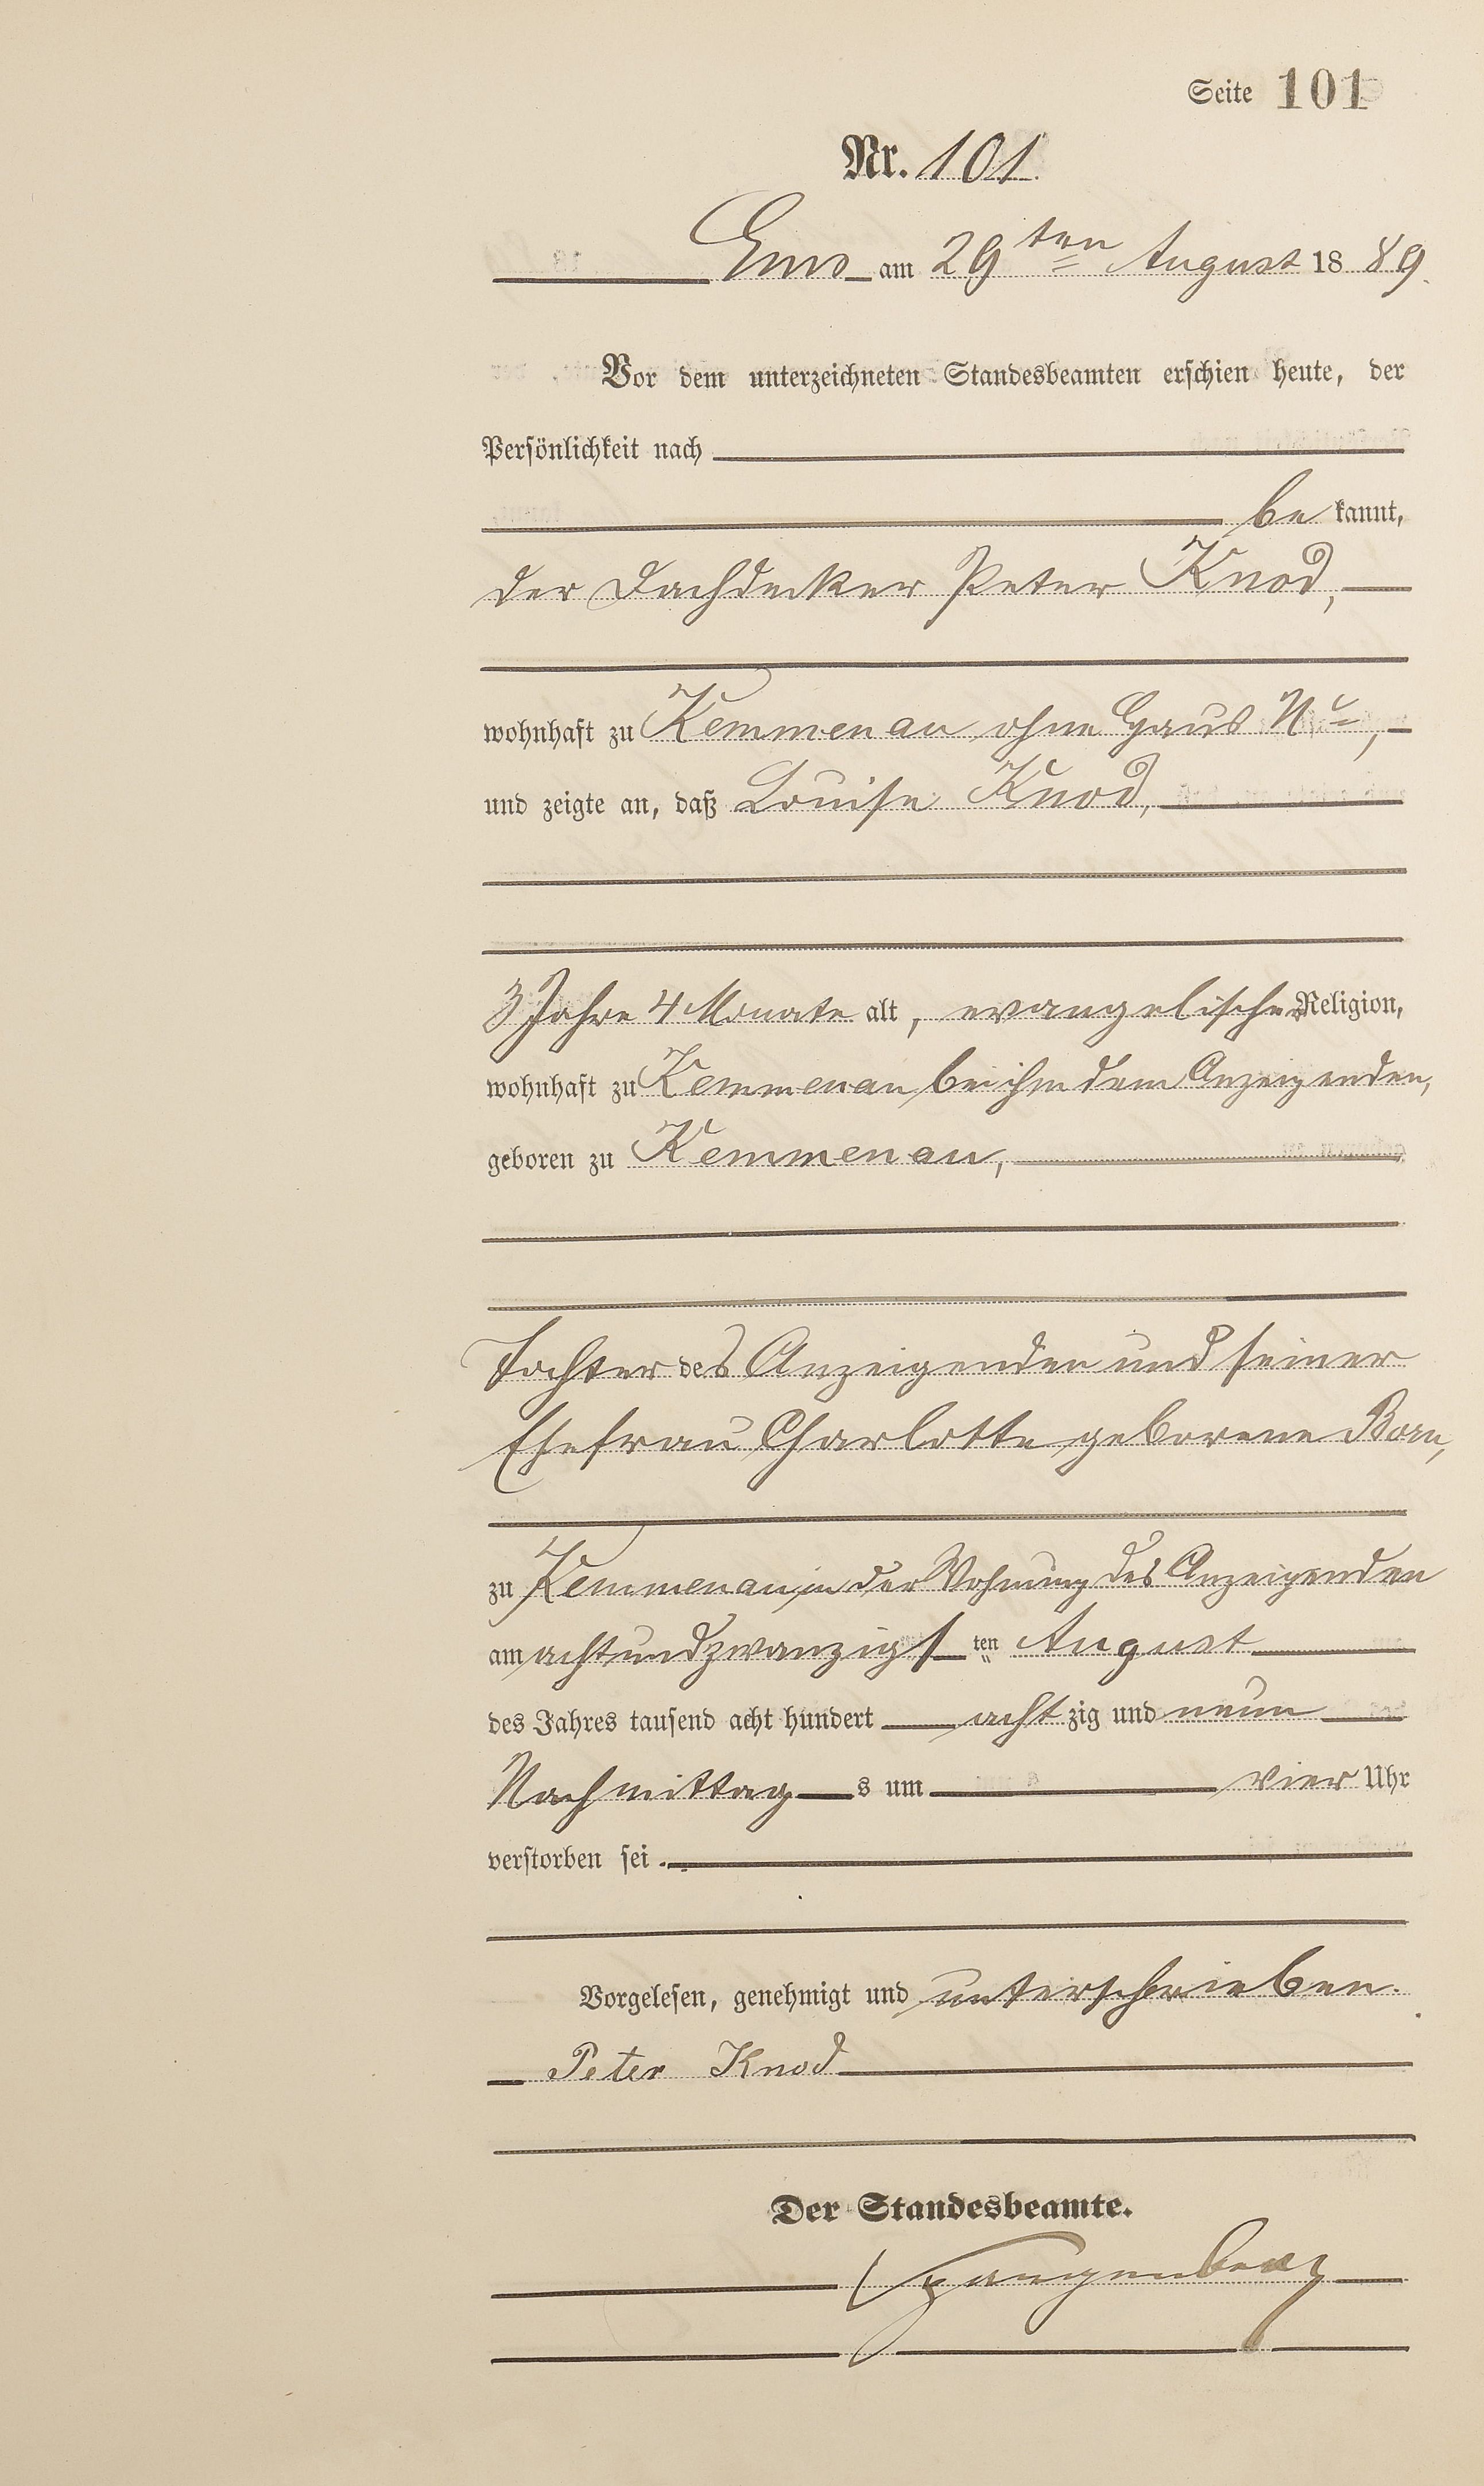 Seite 101
Nr. 101.
Ems am 29ten August 1889.
Vor dem unterzeichneten Standesbeamten erschien heute, der
Persönlichkeit nach
be kannt,
der Dachdecker Peter Knod,
wohnhaft zu Kemmenau ohne Haus Nr,
und zeigte an, daß Louise Knod,
3 Jahre 4 Monate alt, evangelischer Religion,
wohnhaft zu Kemmenau bei ihm dem Anzeigenden,
geboren zu Kemmenau,
Tochter des Anzeigenden und seiner
Ehefrau Charlotte geborene Born,
zu Kemmenau in der Wohnung des Anzeigenden
am achtundzwanzigsten August
des Jahres tausend acht hundert achtzig und neun
Nachmittags um vier Uhr
verstorben sei.
Vorgelesen, genehmigt und unterschrieben.
Peter Knod
Der Standesbeamte.
Spangenberg